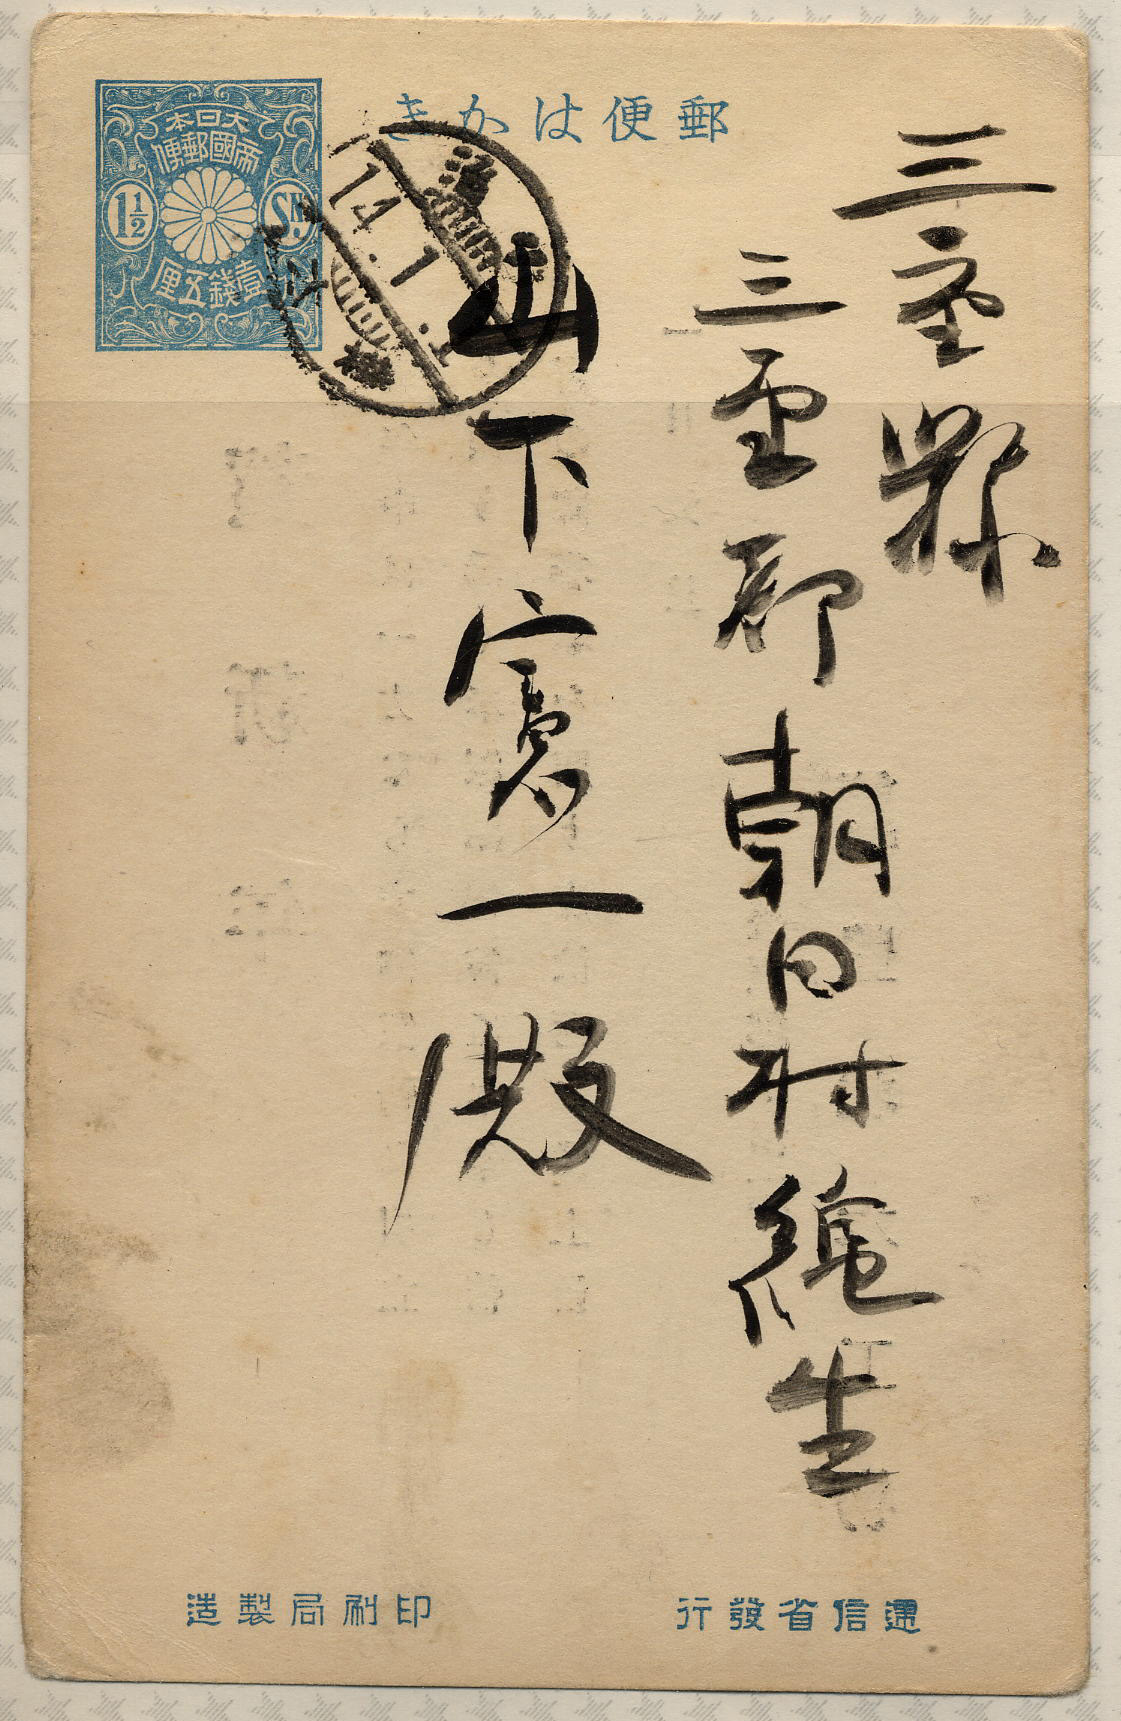 郵便はかき
大日本
帝國郵便
1½ Sn.
壹錢五厘
14.1.1
三重縣
三重郡朝日村縄生
山下憲一殿
遞信省發行
印刷局製造